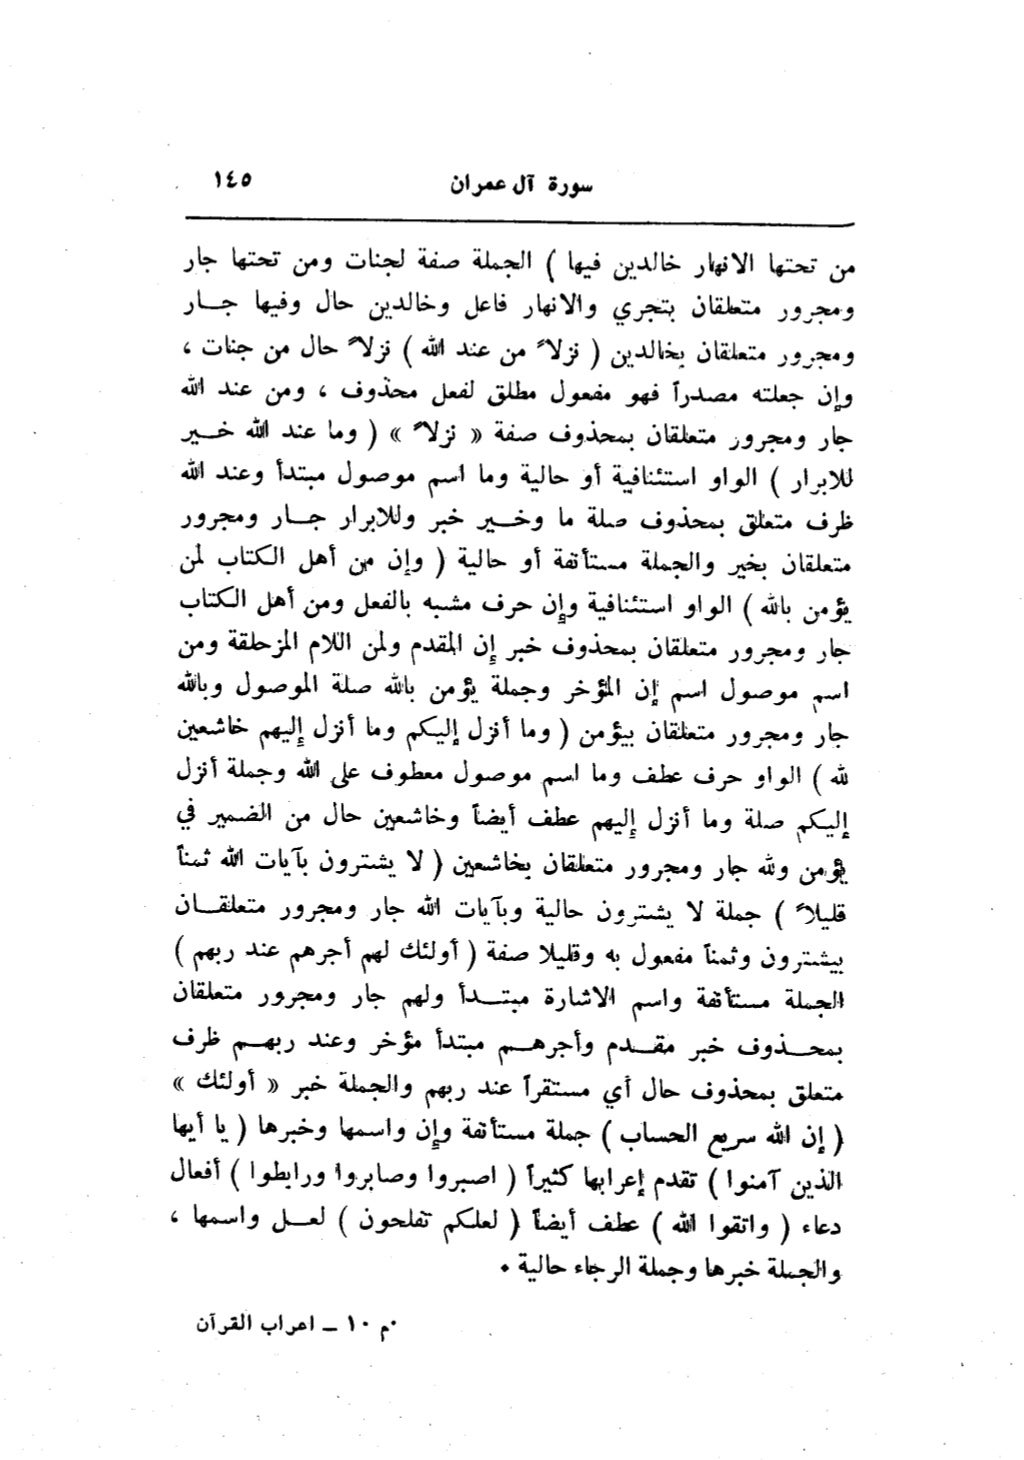 سورة آل عمران ١٤٥
من تحتها الانهار خالدين فيها ) الجملة صفة لجنات ومن تحتها جار
ومجرور متعلقان بتجري والانهار فاعل وخالدين حال وفيها جــار
ومجرور متعلقان بخالدين ( نزلاً من عند الله ) نزلاً حال من جنات ،
وإن جعلته مصدراً فهو مفعول مطلق لفعل محذوف ، ومن عند الله
جار ومجرور متعلقان بمحذوف صفة « نزلاً » ( وما عند الله خــير
للابرار ) الواو استئنافية أو حالية وما اسم موصول مبتدأ وعند الله
ظرف متعلق بمحذوف صلة ما وخــير خبر وللابرار جــار ومجرور
متعلقان بخير والجملة مستأنفة أو حالية ( وإن من أهل الكتاب لمن
يؤمن بالله ) الواو استئنافية وإن حرف مشبه بالفعل ومن أهل الكتاب
جار ومجرور متعلقان بمحذوف خبر إن المقدم ولمن اللام المزحلقة ومن
اسم موصول اسم إن المؤخر وجملة يؤمن بالله صلة الموصول وبالله
جار ومجرور متعلقان بيؤمن ( وما أنزل إليكم وما أنزل إليهم خاشعين
لله ) الواو حرف عطف وما اسم موصول معطوف على الله وجملة أنزل
إليكم صلة وما أنزل إليهم عطف أيضاً وخاشعين حال من الضمير في
يؤمن ولله جار ومجرور متعلقان بخاشعين ( لا يشترون بآيات الله ثمناً
قليلاً ) جملة لا يشترون حالية وبآيات الله جار ومجرور متعلقــان
بيشترون وثمناً مفعول به وقليلا صفة ( أولئك لهم أجرهم عند ربهم )
الجملة مستأنفة واسم الاشارة مبتــدأ ولهم جار ومجرور متعلقان
بمحــذوف خبر مقــدم وأجرهــم مبتدأ مؤخر وعند ربهــم ظرف
متعلق بمحذوف حال أي مستقراً عند ربهم والجملة خبر « أولئك »
( إن الله سريع الحساب ) جملة مستأنفة وإن واسمها وخبرها ( يا أيها
الذين آمنوا ) تقدم إعرابها كثيراً ( اصبروا وصابروا ورابطوا ) أفعال
دعاء ( واتقوا الله ) عطف أيضاً ( لعلكم تفلحون ) لعــل واسمها ،
والجملة خبرها وجملة الرجاء حالية .
م ١٠ ــ اعراب القرآن